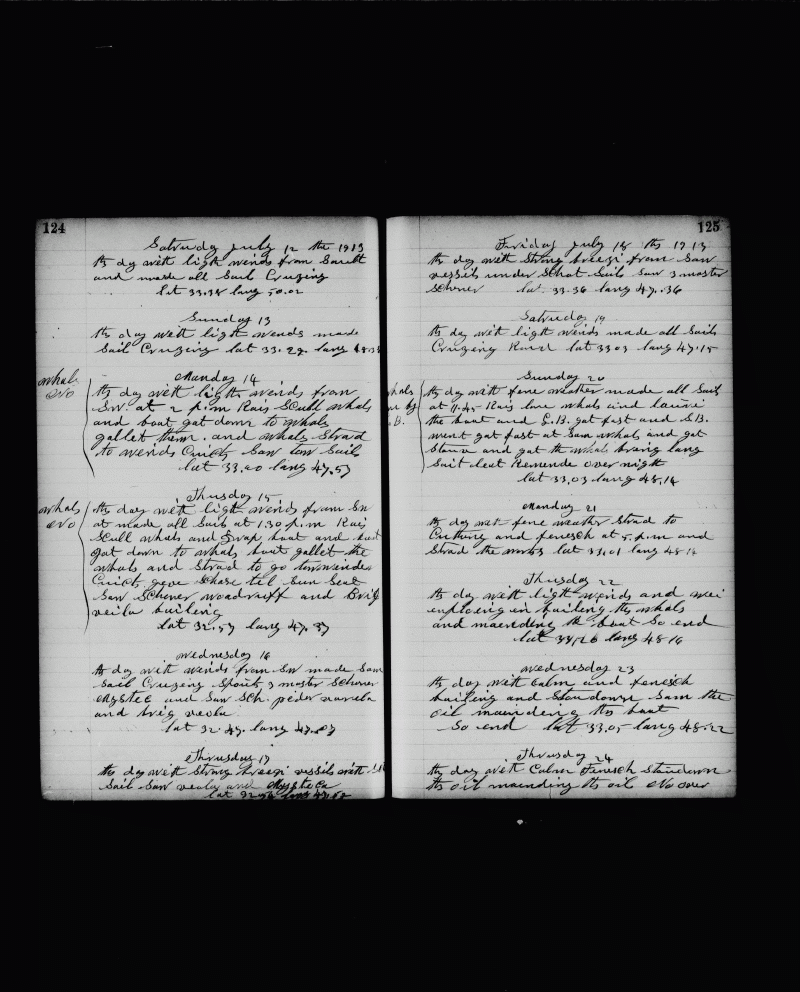 124
Saturdy july 12 the 1913
ths day with ligth winds from Soult
and made all Sail Cruzing
lat 33.38 lang 50.02
Sunday 13
ths day with ligth wends made
Sail Cruzing lat 33.29 lang
Manday 14
whals
No
ths day with ligth winds from
Sw. at 2 p.m Rais Scull whals
and boat gat down to whals
gallet them. and whals Strad
to wends Cuick Saw Sail
lat 33.00 lang 47.57
Thusday 15
whals
No
ths day with ligth winds from Sw
at made all Sails at 1.30 p.m Rais
Scull whals and boat and
gat down to whals but gallet the
whals and Strad to go towinder
Cuick gave Chase tel Sun Seat
Saw Schoner woodruff and Brig
veila builing
lat 32.57 lang 47.37
wednesday 16
ths day with winds from Sw made Sam
Sail Cruzing Spouk 3 master Schoner
Mystec and Saw Sch. peder varela
and brig veola
lat 32.47. lang 47.
Thrusday 17
ths day with Strong breezi vessils with
Sail Saw veola and Mysteca
lat
125
Friday july 18 ths 1913
ths day with Strong breezi from Saw
vessils under Schot Sails Saw 3 master
Schoner lat. 33.36 lang 47.36
Satruday 19
ths day with ligth winds made all Sails
Cruzing lat 33.03 lang 47.15
Sunday 20
whals
by
B.
ths day with fine weather made all Sails
at 11.45 Rais lone whals and lauire
the boat and B. gat fast and S.B.
went gat fast at Sam whals and gat
Stove and gat the whals braing lang
Sait over nigth
lat 33.03 lang 48.14
Manday 21
ths day with fene weather Strad to
Cutting and fenesch at 5. p.m and
Strad the works lat 33.01 lang 48.14
Thusday 22
ths day with ligth wends and
emploeing en baileng ths whals
and maending the boat So end
lat lang 48.16
wednesday 23
ths day with Calm and fenesch
bailing and Standown Sam the
oil maindeng ths boat
So end lat 33.05 lang 48.22
Thrusday 24
ths day with Calm Fenesch Standown
ths oil mainding ths oil No over